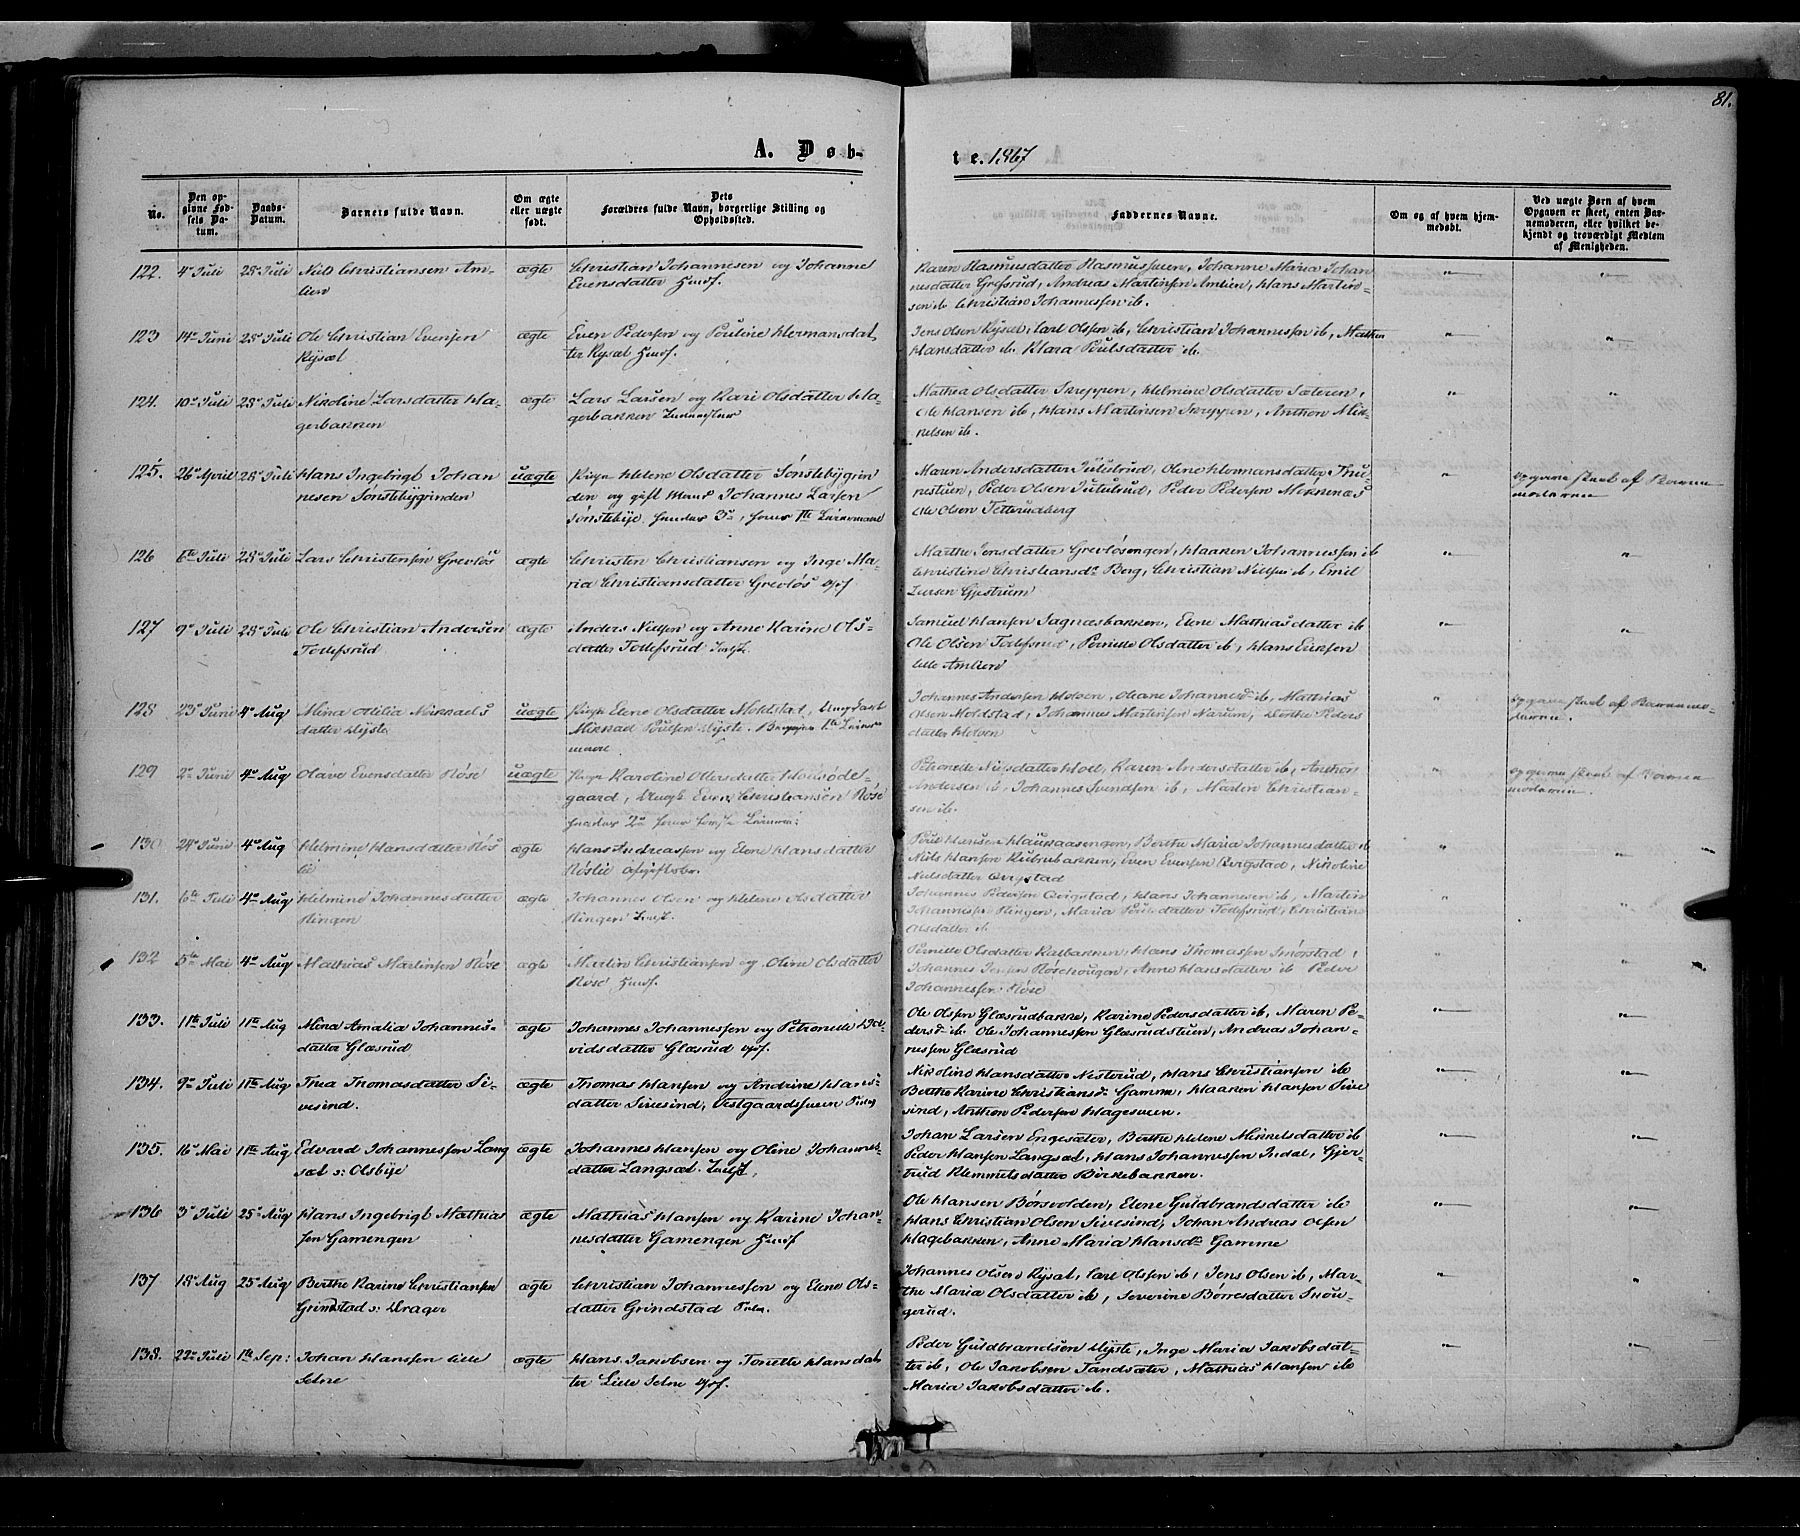 81.
A. Døb-
te. 1867
No.
Den opgivne Fødsels Datum.
Daabs-Datum.
Barnets fulde Navn.
Om ægte eller uægte født.
Dets Forældres fulde Navn, borgerlige Stilling og Opholdssted.
Faddernes Navne.
Om og af hvem hjemmedøbt.
Ved uægte Børn af hvem Opgaven er skeet, enten Barnemoderen, eller hvilket bekjendt og troværdigt Medlem af Menigheden.
122. 4de Juli 28de Juli Nils Christiansen Am-
lien
ægte
Christian Johannesen og Johanne
Evensdatter Husf.
Karen Rasmusdatter Rasmussveen, Johanne Maria Johan
nesdatter Grefsrud, Andreas Martinsen Amlien, Hans Martin-
sen ib Christian Johannessen ib.
123 14de Juni 28de Juli Ole Christian Evensen
Rysæt
ægte
Even Pedersen og Pauline Hermansdat
ter Rysæt Husf.
Jens Olsen Rysæt, Carl Olsen ib, Christian Johannessen ib, Mathea
Hansdatter ib. Klara Poulsdatter ib.
124. 10de Juli 28de Juli Nikoline Larsdatter Ha-
gerbakken
ægte
Lars Larsen og Kari Olsdatter Ha-
gerbakken
Mathea Olsdatter Skreppen, Helmine Olsdatter Sæteren,
Ole Hansen ib, Hans Martinsen Skreppen, Anthon Mik-
kelsen ib.
125. 26de April 28de Juli Hans Ingebrigt Johan
nesen Sønstebygrinden
uægte
Pige Helene Olsdatter Sønstebygrin
den og gift Mand Johannes Larsen
Sønstebye. hendes 3de, hans 1ste Leiermaal
Maren Andersdatter Jutulrud, Olene Hermansdatter Thu-
nestuen, Peder Olsen Jutulrud, Peder Pedersen Mikkenæs
Ole Olsen Tetterudberg
opgivne skeet af Barne
moderen
126 6te Juli 28de Juli Lars Christensen Grevløs
ægte
Christen Christiansen og Inge Ma-
ria Christiansdatter Grevløs Gjf
Marthe Jensdatter Grevløsengen, Haaken Johannessen ib
Christine Christiansdr Berg, Christian Nilssen ib, Emil
Larsen Gjestrum
127 9de Juli 28de Juli Ole Christian Andersen
Tollefsrud
ægte
Anders Nilssen og Anne Karine Ols-
datter Tollefsrud Indst.
Samuel Hansen Sagnæsbakken, Elene Mathiasdatter ib
Ole Olsen Tollefsrud, Pernille Olsdatter ib, Hans Eriksen
lille Amlien
128 23de Juni 4de Aug Mina Otilia Mikkaels
datter Dyste
uægte
Pige Elene Olsdatter Moldstad, Ungkarl
Mikkael Poulsen Dyste. Begges 1ste Leiers
maal
Johannes Andersen Holsen, Oleane Johannesdr ib, Mathias
Olsen Moldstad, Johannes Martinsen Narum, Dorthe Peders
datter Holsen
opgivne skeet af Barnemo-
deren.
129 2de Juni 4de Aug Olave Evensdatter Røise
uægte
Pige Karoline Ollersdatter Holsøde-
gaard, Ungk Even Christiansen Røise
hendes 2de hans første Leierm.
Petronelle Nilsdatter Hoel, Karen Andersdatter ib, Anthon
Andersen ib, Johannes Svendsen ib, Martin Christian-
sen ib.
opgivne skeet af Barne
moderen.
130 24de Juni 4de Aug Helmine Hansdatter Røs
lie
ægte
Hans Andreassen og Elene Hansdatter
Røslie Afgiftsbr.
Poul Hansen Haukaasengen, Berthe Maria Johannesdatter ib
Nils Hansen Kubrubakken, Even Evensen Qvigstad, Nikoline
Nilsdatter Qvigstad
131. 6te Juli 4de Aug Helmine Johannesdatter
Ringen
ægte
Johannes Olsen og Helene Olsdatter
Ringen Indst.
Johannes Pedersen Qvigstad, Hans Johannesen ib, Martin
Johannessen Ringen, Maria Poulsdatter Tollefsrud, Christiane
Olsdatter ib
132 5te Mai 4de Aug Mathias Martinsen Røise
ægte
Martin Christiansen og Oline Olsdatter
Røise Husf.
Pernille Olsdatter Kalbakken, Hans Thomassen Smørstad,
Johannes Jensen Røisehougen, Anne Hansdatter ib Peder
Johannessen Røise
133. 11te Juli 11te Aug Mina Amalia Johannes-
datter Glæsrud
ægte
Johannes Johannessen og Petronelle Da-
vidsdatter Glæsrud Gjf.
Ole Olsen Glæsrudbakke, Karine Pedersdatter ib, Maren Pe-
dersd ib. Ole Johannessen Glæsrudstuen, Andreas Johan-
nessen Glæsrud
134. 9de Juli 11te Aug Thea Thomasdatter Si-
vesind.
ægte
Thomas Hansen og Andrine Hans-
datter Sivesind, Vestgaardshuen
Nikoline Hansdatter Nesterud, Hans Christiansen ib
Berthe Karine Christiansdr Gamme, Haaken Hansen Sive
sind, Anthon Pedersen Hagesveen.
135. 16de Mai 11te Aug Edvard Johannessen Lang
sæt s: Olsbye
ægte
Johannes Hansen og Oline Johannes-
datter Langsæt. Indst.
Johan Larsen Engesæter, Berthe Helene Mikkelsdatter ib
Peder Hansen Langsæt, Hans Johannessen Indal, Gjer-
trud Klemmetsdatter Birkebakken.
136 3de Juli 25de Aug Hans Ingebrigt Mathias
sen Gamengen
ægte
Mathias Hansen og Karine Johan-
nesdatter Gamengen Husf
Ole Hansen Børsvolden, Elene Guldbrandsdatter ib
Hans Christian Olsen Sivesind, Johan Andreas Olsen
Hagebakken, Anne Maria Hansdr Gamme
137 18 Aug 25de Aug Berthe Karine Christiansen
Grindstad s: Drager
ægte
Christian Johannessen og Elene Ols-
datter Grindstad
Johannes Olsen Rysæt, Carl Olsen ib, Jens Olsen ib, Mar-
the Maria Olsdatter ib, Severine Børresdatter Skou-
gerud.
138. 22de Juli 1ste Sep: Johan Hanssen lille
Selne
ægte
Hans Jakobsen og Tonette Hansdat
ter Lille Selne Gjf.
Peder Guldbrandsen Dyste, Inge Maria Jakobsdat-
ter ib, Ole Jakobsen Sandsæter, Mathias Hansen ib
Maria Jakobsdatter ib.